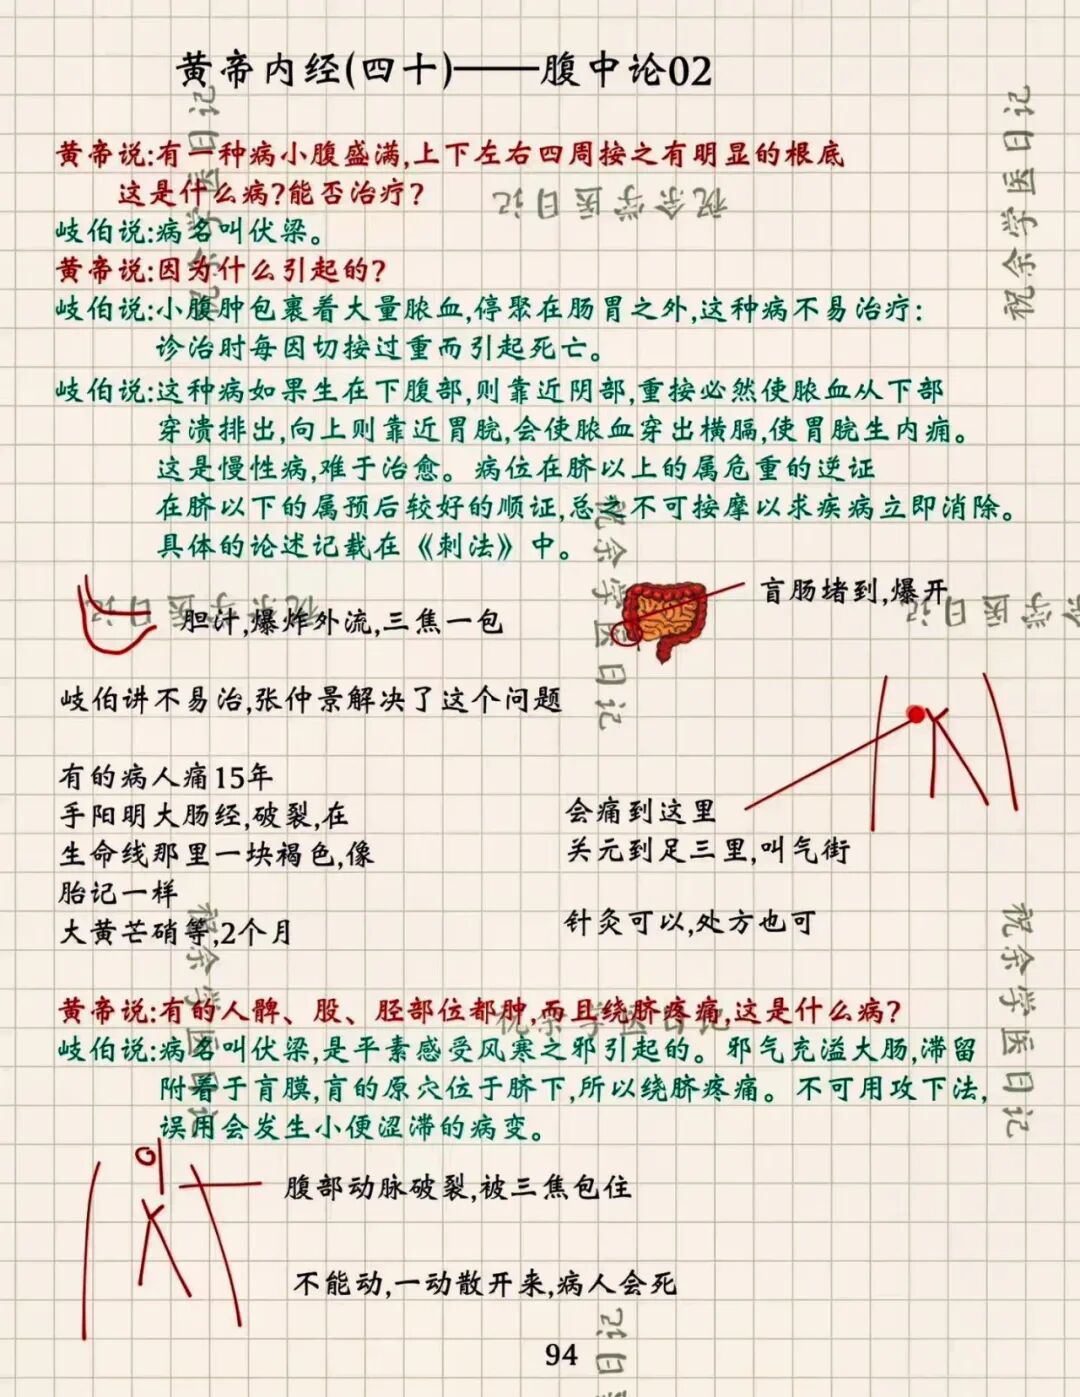 黄帝内经(四十)——腹中论02
黄帝说:有一种病小腹盛满,上下左右四周按之有明显的根底
这是什么病?能否治疗?
岐伯说:病名叫伏梁。
黄帝说:因为什么引起的?
岐伯说:小腹肿包裹着大量脓血,停聚在肠胃之外,这种病不易治疗:
诊治时每因切按过重而引起死亡。
岐伯说:这种病如果生在下腹部,则靠近阴部,重按必然使脓血从下部
穿溃排出,向上则靠近胃脘,会使脓血穿出横膈,使胃脘生内痈。
这是慢性病,难于治愈。病位在脐以上的属危重的逆证
在脐以下的属预后较好的顺证,总之不可按摩以求疾病立即消除。
具体的论述记载在《刺法》中。
盲肠堵到,爆开
胆汁,爆炸外流,三焦一包
岐伯讲不易治,张仲景解决了这个问题
有的病人痛15年
手阳明大肠经,破裂,在
生命线那里一块褐色,像
胎记一样
大黄芒硝等,2个月
会痛到这里
关元到足三里,叫气街
针灸可以,处方也可
黄帝说:有的人髀、股、胫部位都肿,而且绕脐疼痛,这是什么病?
岐伯说:病名叫伏梁,是平素感受风寒之邪引起的。邪气充溢大肠,滞留
附着于肓膜,肓的原穴位于脐下,所以绕脐疼痛。不可用攻下法,
误用会发生小便涩滞的病变。
腹部动脉破裂,被三焦包住
不能动,一动散开来,病人会死
94
祝余学医日记
祝余学医日记
祝余学医日记
祝余学医日记
祝余学医日记
祝余学医日记
祝余学医日记
祝余学医日记
祝余学医日记